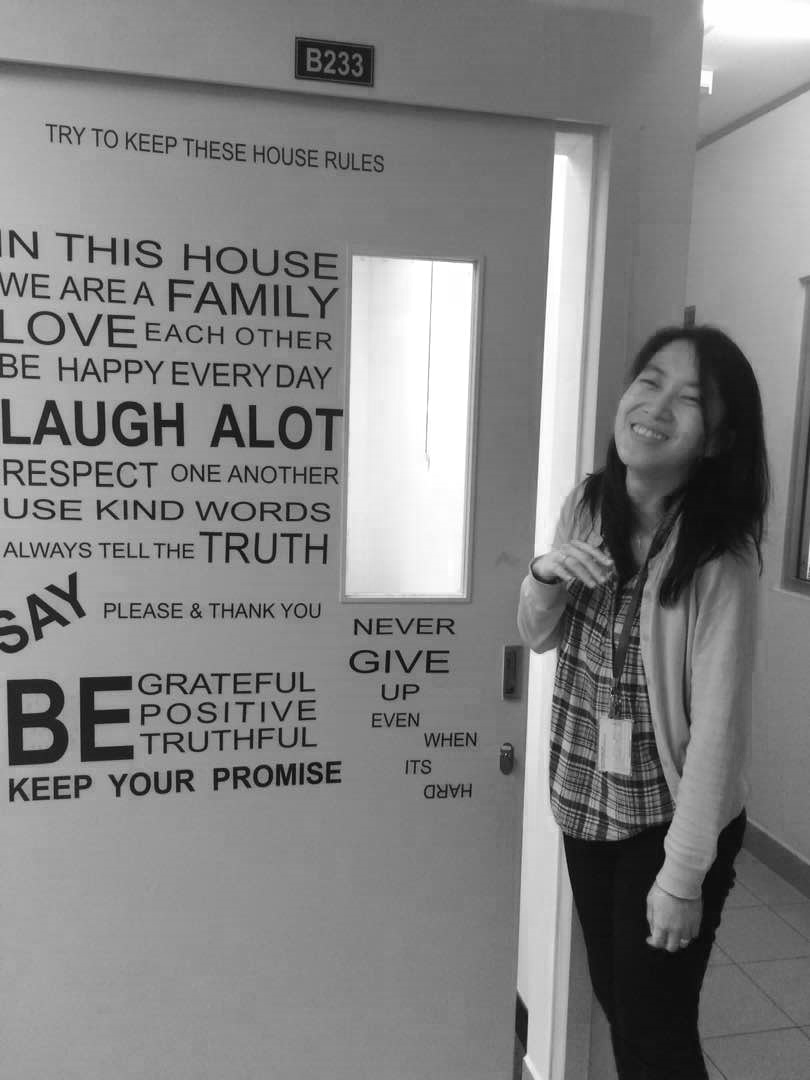 B233
TRY TO KEEP THESE HOUSE RULES
IN THIS HOUSE
WE ARE A FAMILY
LOVE EACH OTHER
BE HAPPY EVERYDAY
LAUGH ALOT
RESPECT ONE ANOTHER
USE KIND WORDS
ALWAYS TELL THE TRUTH
SAY PLEASE & THANK YOU
BE GRATEFUL
POSITIVE
TRUTHFUL
KEEP YOUR PROMISE
NEVER
GIVE
UP
EVEN
WHEN
ITS
HARD